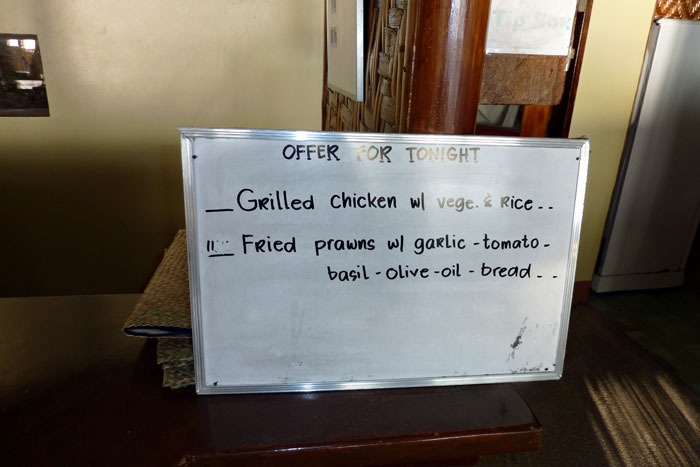 Tip Box
OFFER FOR TONIGHT
__ Grilled chicken w/ vege. & Rice..
__ Fried prawns w/ garlic - tomato -
basil - olive - oil - bread - -